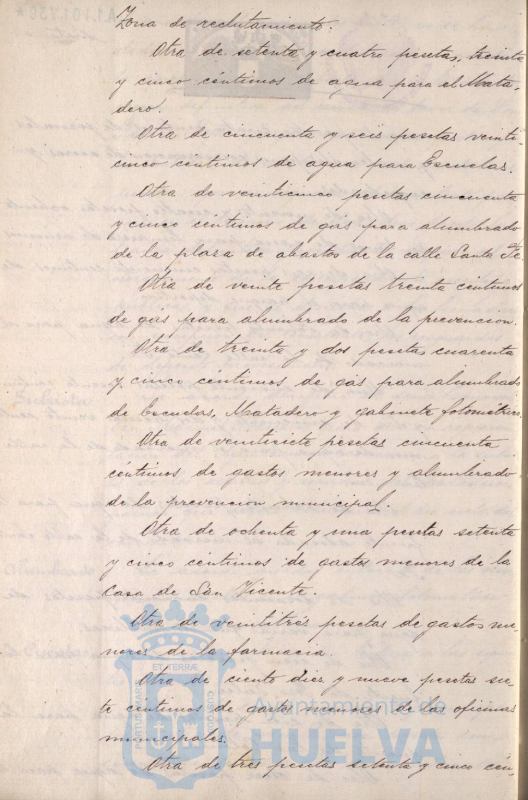 Zona de reclutamiento.
Otra de setenta y cuatro pesetas, treinta
y cinco céntimos de agua para el Mata-
dero.
Otra de cincuenta y seis pesetas veinti-
cinco céntimos de agua para Escuelas.
Otra de veinticinco pesetas cincuenta
y cinco céntimos de gas para alumbrado
de la plaza de abastos de la calle Santa Fe
Otra de veinte pesetas treinta céntimos
de gas para alumbrado de la prevencion.
Otra de treinta y dos pesetas cuarenta
y cinco céntimos de gas para alumbrado
de Escuelas, Matadero y gabinete fotométrico.
Otra de veintisiete pesetas cincuenta
céntimos de gastos menores y alumbrado
de la prevencion municipal.
Otra de ochenta y una pesetas setenta
y cinco céntimos de gastos menores de la
Casa de San Vicente.
Otra de veintitrés pesetas de gastos me-
nores de la farmacia.
Otra de ciento diez y nueve pesetas sie-
te céntimos de gastos menores de las oficinas
municipales.
Otra de tres pesetas setenta y cinco cén-
ET TERRÆ
PORTUS MARIS
CUSTODIO
Ayuntamiento de
HUELVA